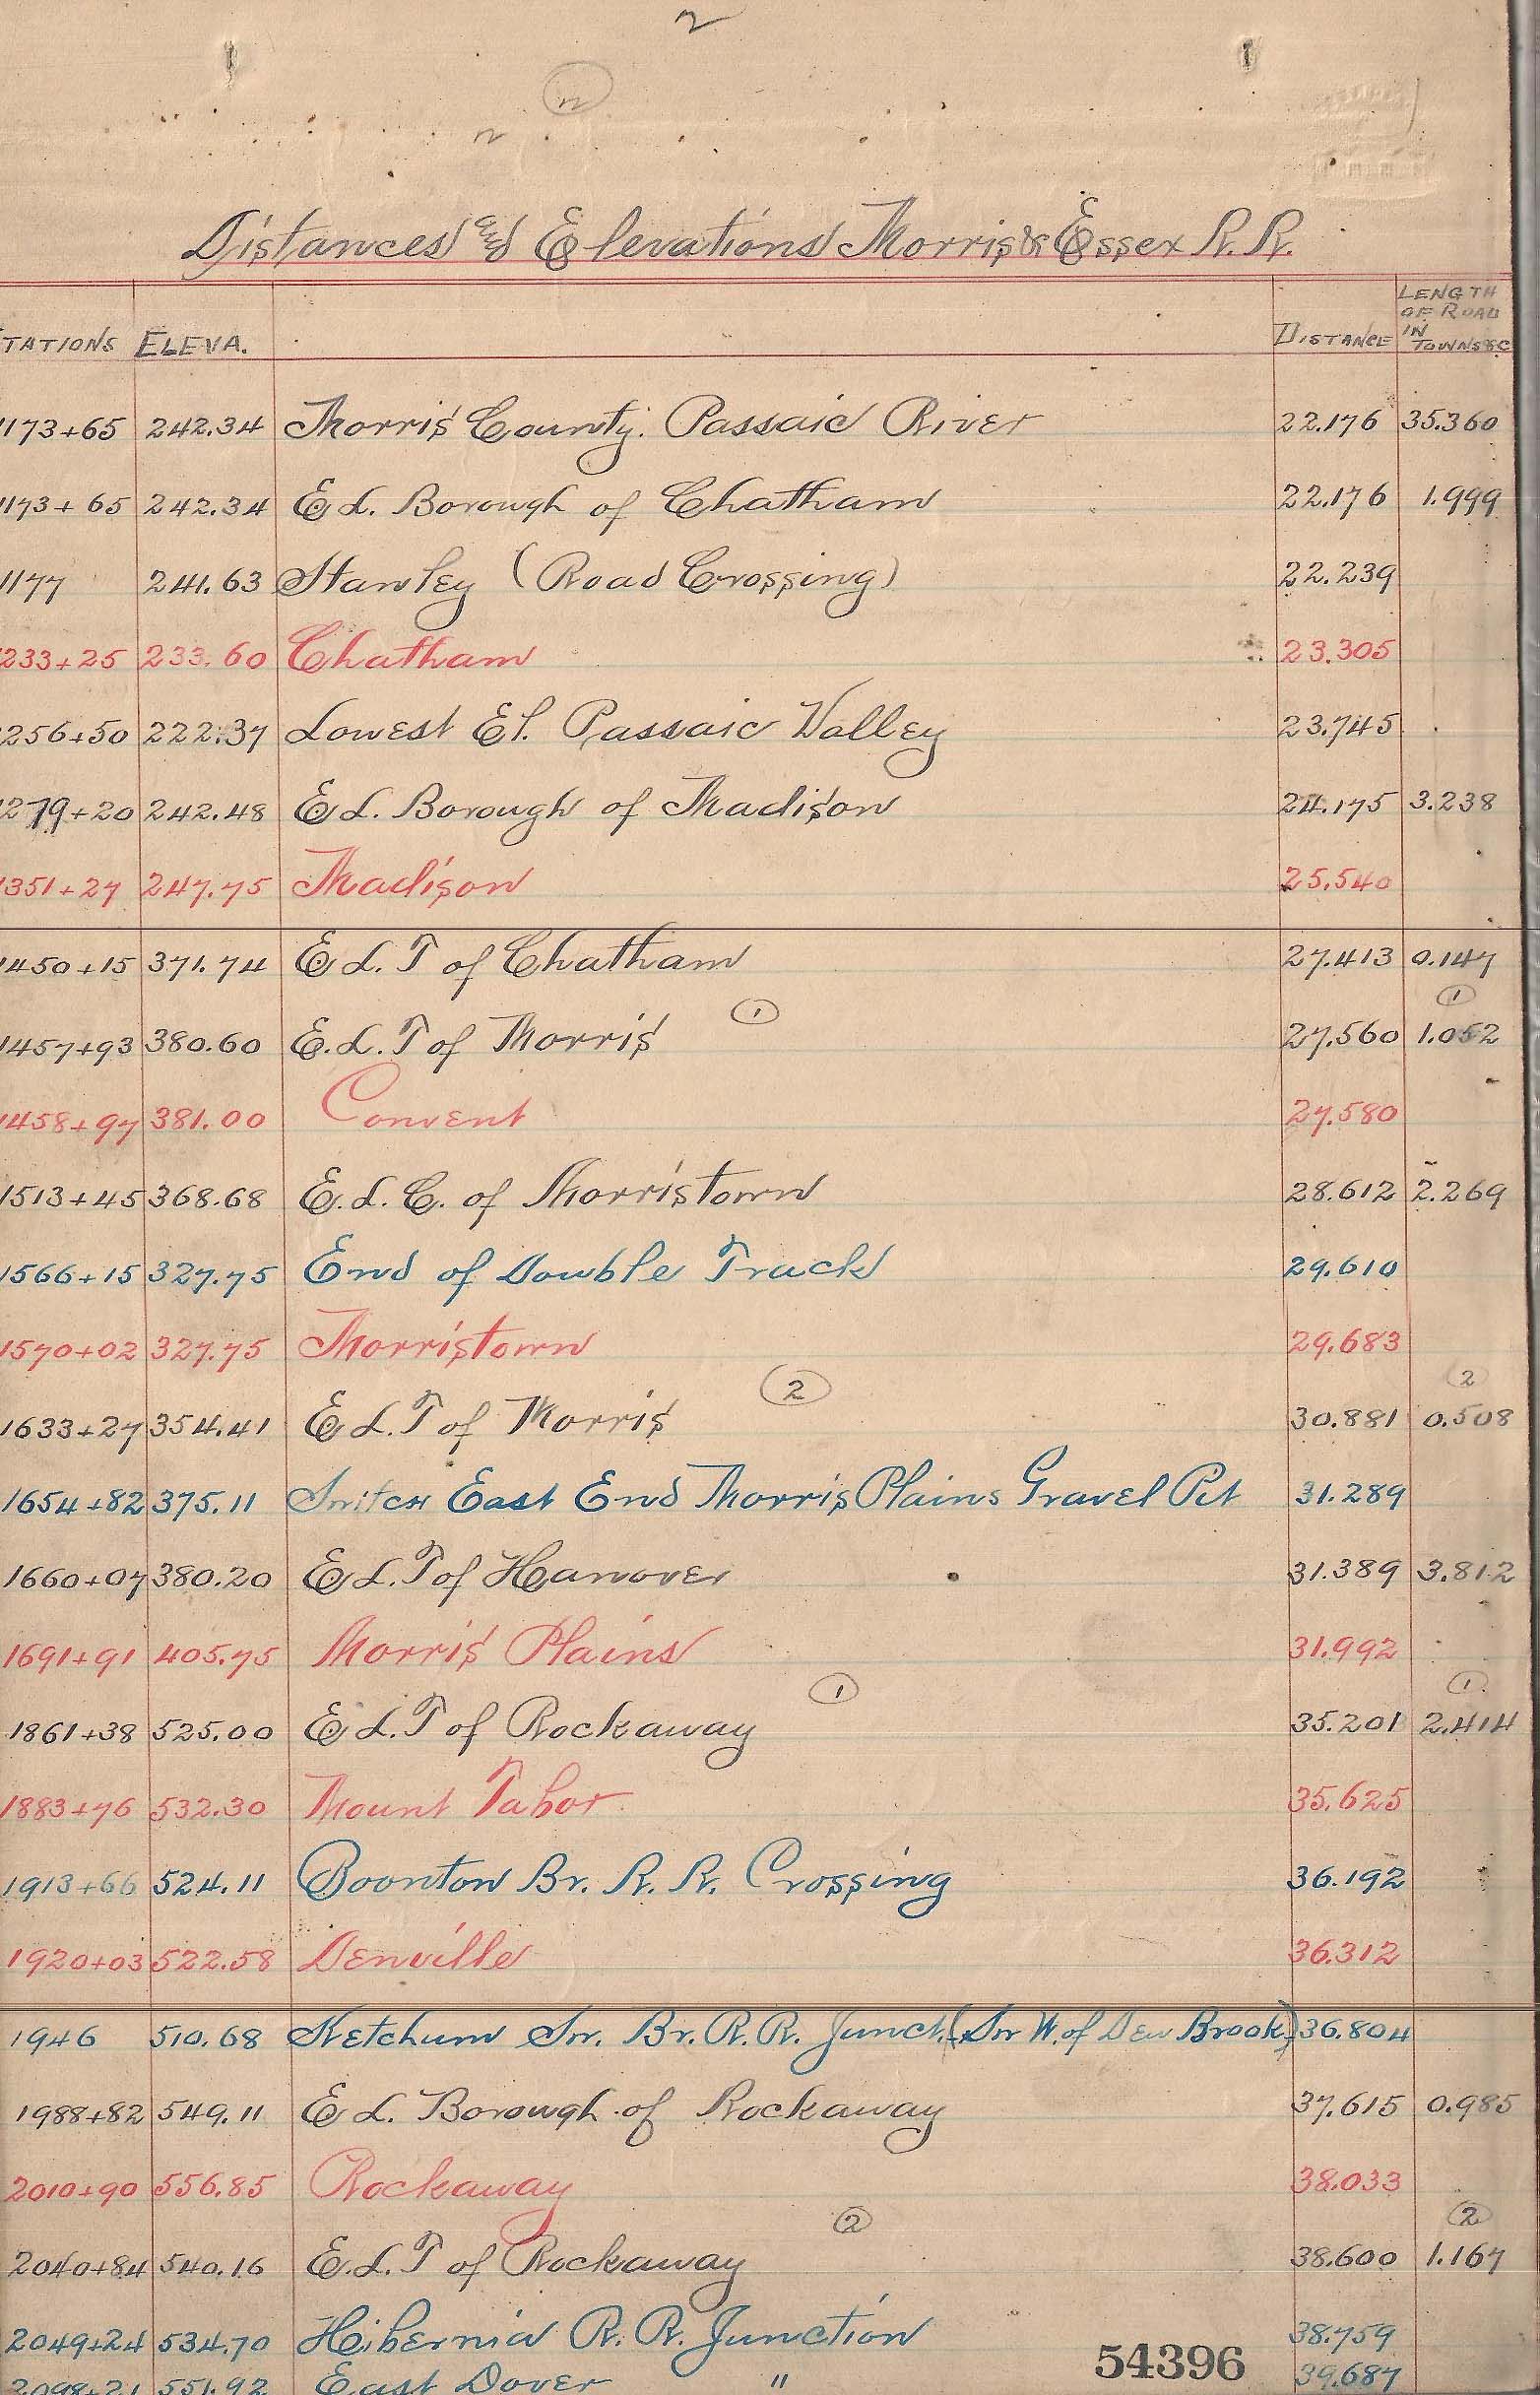 2
2
2
Distances and Elevations Morris & Essex R. R.
TATIONS ELEVA. DISTANCE LENGTH OF ROAD IN TOWNS &C
1173+65 242.34 Morris County. Passaic River 22.176 35.360
1173+65 242.34 E L. Borough of Chatham 22.176 1.999
1177 241.63 Stanley (Road Crossing) 22.239
233+25 233.60 Chatham 23.305
256+50 222.37 Lowest El. Passaic Valley 23.745
279+20 242.48 E L. Borough of Madison 24.175 3.238
1351+27 247.75 Madison 25.540
1450+15 371.74 E L. T of Chatham 27.413 0.147
1 1
1457+93 380.60 E. L. T of Morris 27.560 1.052
1458+97 381.00 Convent 27.580
1513+45 368.68 E. L. C. of Morristown 28.612 2.269
1566+15 327.75 End of Double Track 29.610
1570+02 327.75 Morristown 29.683
2 2
1633+27 354.41 E L. T of Morris 30.881 0.508
1654+82 375.11 Switch East End Morris Plains Gravel Pit 31.289
1660+07 380.20 E L. T of Hanover 31.389 3.812
1691+91 405.75 Morris Plains 31.992
1 1
1861+38 525.00 E L. T of Rockaway 35.201 2.414
1883+76 532.30 Mount Tabor 35.625
1913+66 524.11 Boonton Br. R. R. Crossing 36.192
1920+03 522.58 Denville 36.312
1946 510.68 Ketchum Sw. Br. R. R. Junct. (Sw W. of Den Brook) 36.804
1988+82 549.11 E L. Borough of Rockaway 37.615 0.985
2010+90 556.85 Rockaway 38.033
2 2
2040+84 540.16 E. L. T of Rockaway 38.600 1.167
2049+24 534.70 Hibernia R. R. Junction 38.759
2098+21 551.92 East Dover " 39.687
54396